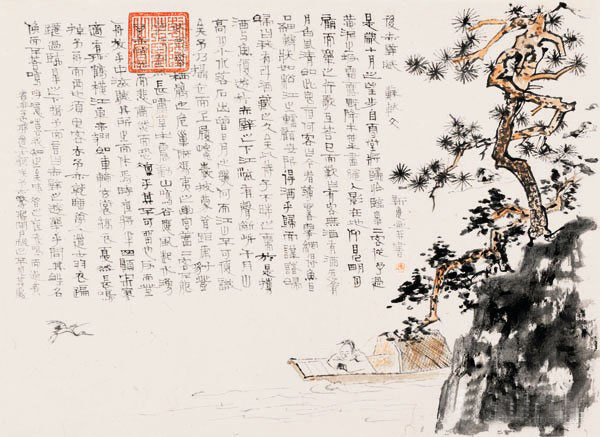 後赤壁賦 蘇軾文
是歲十月之望步自雪堂將歸臨皋二客從予過
黃泥之坂霜露既降木葉盡脫人影在地仰見明月
顧而樂之行歌互答已而歎曰有客無酒有酒無肴
月白風清如此良夜何客曰今者薄暮舉網得魚巨
口細鱗狀如松江之鱸顧安所得酒乎歸而謀諸婦
婦曰我有斗酒藏之久矣以待子不時之需於是攜
酒與魚復遊於赤壁之下江流有聲斷岸千尺山
高月小水落石出曾日月之幾何而江山不可復識
矣予乃攝衣而上履巉巖披蒙茸踞虎豹登
棲鶻之危巢俯馮夷之幽宮蓋二客不能
長嘯草木震動山鳴谷應風起水湧
而悲肅然而恐凜乎其不可留也反而登
舟放乎中流聽其所止而休焉時夜將半四顧寂寥
適有孤鶴橫江東來翅如車輪玄裳縞衣戛然長鳴
掠予舟而西也須臾客去予亦就睡夢一道士羽衣蹁
躚過臨皋之下揖予而言曰赤壁之遊樂乎問其姓名
俛而不答嗚呼噫嘻我知之矣疇昔之夜飛鳴而過我
者非子也耶道士顧笑予亦驚寤開戶視之不見其處